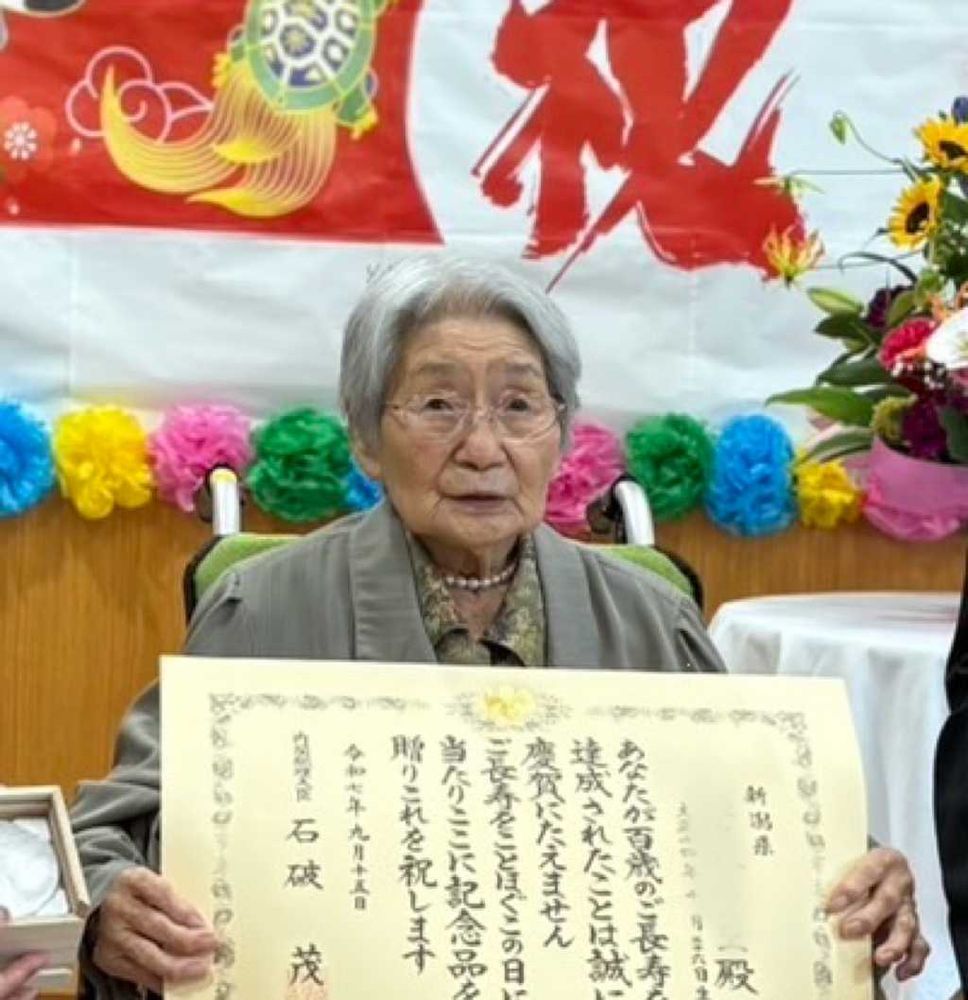 祝
新潟県
殿
あなたが百歳のご長寿を
達成されたことは誠に
慶賀にたえません
ご長寿をことほぐこの日に
当たりここに記念品を
贈りこれを祝します
令和七年九月十五日
内閣総理大臣 石破 茂